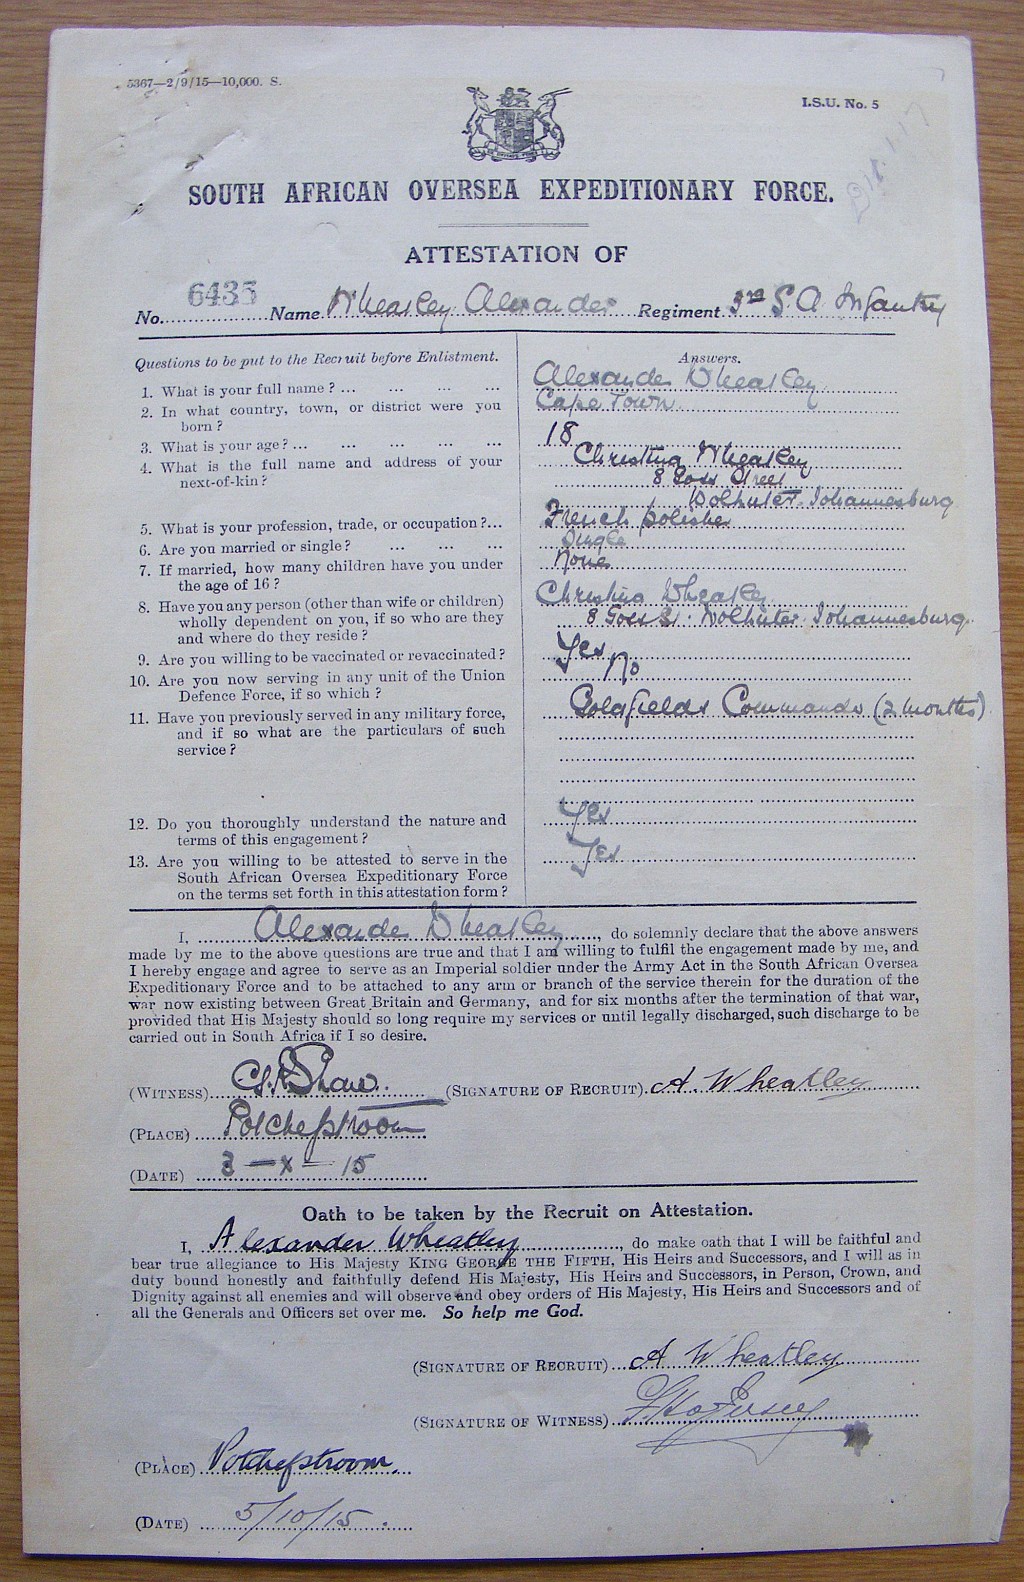 5367—2/9/15—10,000. S.
I.S.U. No. 5
SOUTH AFRICAN OVERSEA EXPEDITIONARY FORCE.
ATTESTATION OF
No. 6435 Name Wheatley Alexander Regiment 3rd S.A. Infantry
Questions to be put to the Recruit before Enlistment.
Answers.
1. What is your full name ? ... ... ... ...
Alexander Wheatley
2. In what country, town, or district were you
born ?
Cape Town
3. What is your age? ... ... ... ... ...
18
4. What is the full name and address of your
next-of-kin ?
Christina Wheatley
8 Goss Street
Wolhuter Johannesburg
5. What is your profession, trade, or occupation ?...
French polisher
6. Are you married or single ? ... ... ...
Single
7. If married, how many children have you under
the age of 16 ?
None
8. Have you any person (other than wife or children)
wholly dependent on you, if so who are they
and where do they reside ?
Christina Wheatley
8 Goss St. Wolhuter Johannesburg
9. Are you willing to be vaccinated or revaccinated ?
Yes
10. Are you now serving in any unit of the Union
Defence Force, if so which ?
No
11. Have you previously served in any military force,
and if so what are the particulars of such
service ?
Goldfields Commando (2 months)
12. Do you thoroughly understand the nature and
terms of this engagement ?
Yes
13. Are you willing to be attested to serve in the
South African Oversea Expeditionary Force
on the terms set forth in this attestation form ?
Yes
I, Alexander Wheatley, do solemnly declare that the above answers
made by me to the above questions are true and that I am willing to fulfil the engagement made by me, and
I hereby engage and agree to serve as an Imperial soldier under the Army Act in the South African Oversea
Expeditionary Force and to be attached to any arm or branch of the service therein for the duration of the
war now existing between Great Britain and Germany, and for six months after the termination of that war,
provided that His Majesty should so long require my services or until legally discharged, such discharge to be
carried out in South Africa if I so desire.
(WITNESS) Shaw (SIGNATURE OF RECRUIT) A. Wheatley
(PLACE) Potchefstroom
(DATE) 3 — X — 15
Oath to be taken by the Recruit on Attestation.
I, Alexander Wheatley, do make oath that I will be faithful and
bear true allegiance to His Majesty KING GEORGE THE FIFTH, His Heirs and Successors, and I will as in
duty bound honestly and faithfully defend His Majesty, His Heirs and Successors, in Person, Crown, and
Dignity against all enemies and will observe and obey orders of His Majesty, His Heirs and Successors and of
all the Generals and Officers set over me. So help me God.
(SIGNATURE OF RECRUIT) A Wheatley
(SIGNATURE OF WITNESS)
(PLACE) Potchefstroom.
(DATE) 5/10/15.